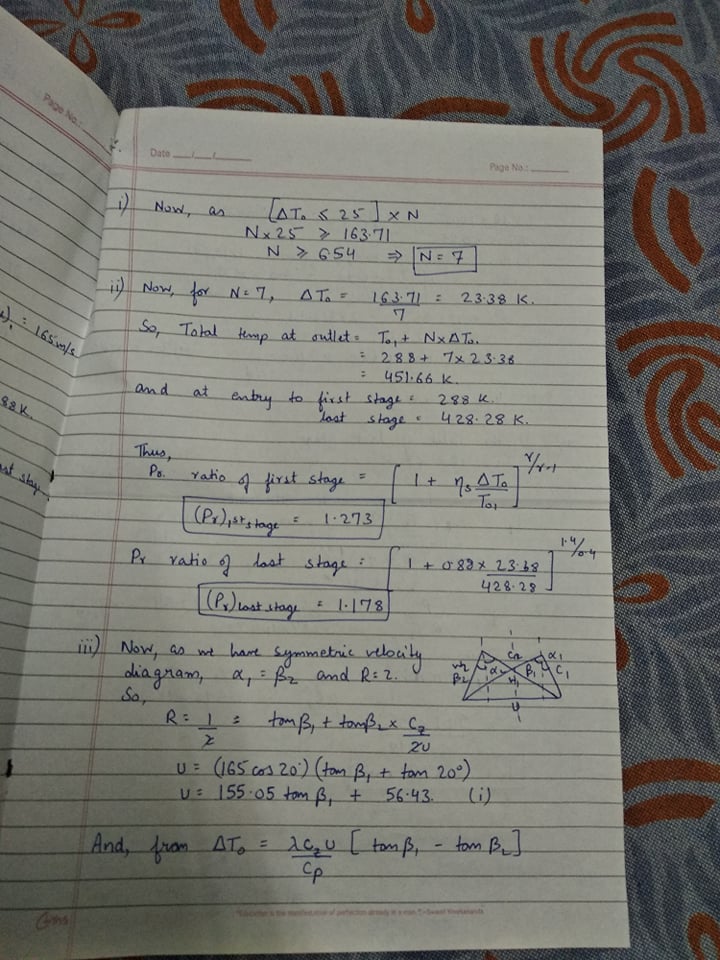 Page No.:
Date __/__/____
Page No.:
i) Now, as [ΔT₀ ≤ 25] × N
N×25 ≥ 163.71
N ≥ 6.54 ⇒ N = 7
ii) Now, for N=7, ΔT₀ = 163.71/7 = 23.38 K.
So, Total temp at outlet = T₀₁ + N×ΔT₀.
= 288 + 7×23.38
= 451.66 K.
and at entry to first stage = 288 K.
last stage = 428.28 K.
Thus,
Po. ratio of first stage = [1 + ηs ΔT₀/T₀₁]^γ/γ-1
(Pr)1st stage = 1.273
Pr ratio of last stage = [1 + 0.88 × 23.38/428.28]^1.4/0.4
(Pr) last stage = 1.178
iii) Now, as we have symmetric velocity
diagram, α₁ = β₂ and R=2.
So,
R = 1/2 = tanβ₁ + tanβ₂ × Cz/2U
U = (165 cos 20°) (tan β₁ + tan 20°)
U = 155.05 tan β₁ + 56.43. (i)
And, from ΔT₀ = λCzU/Cp [tanβ₁ - tan β₂]
C₂ α₁ β₂ α₂ β₁ C₁ U
= 165 m/s
88 K.
"Education is the manifestation of perfection already in a man."-Swami Vivekananda